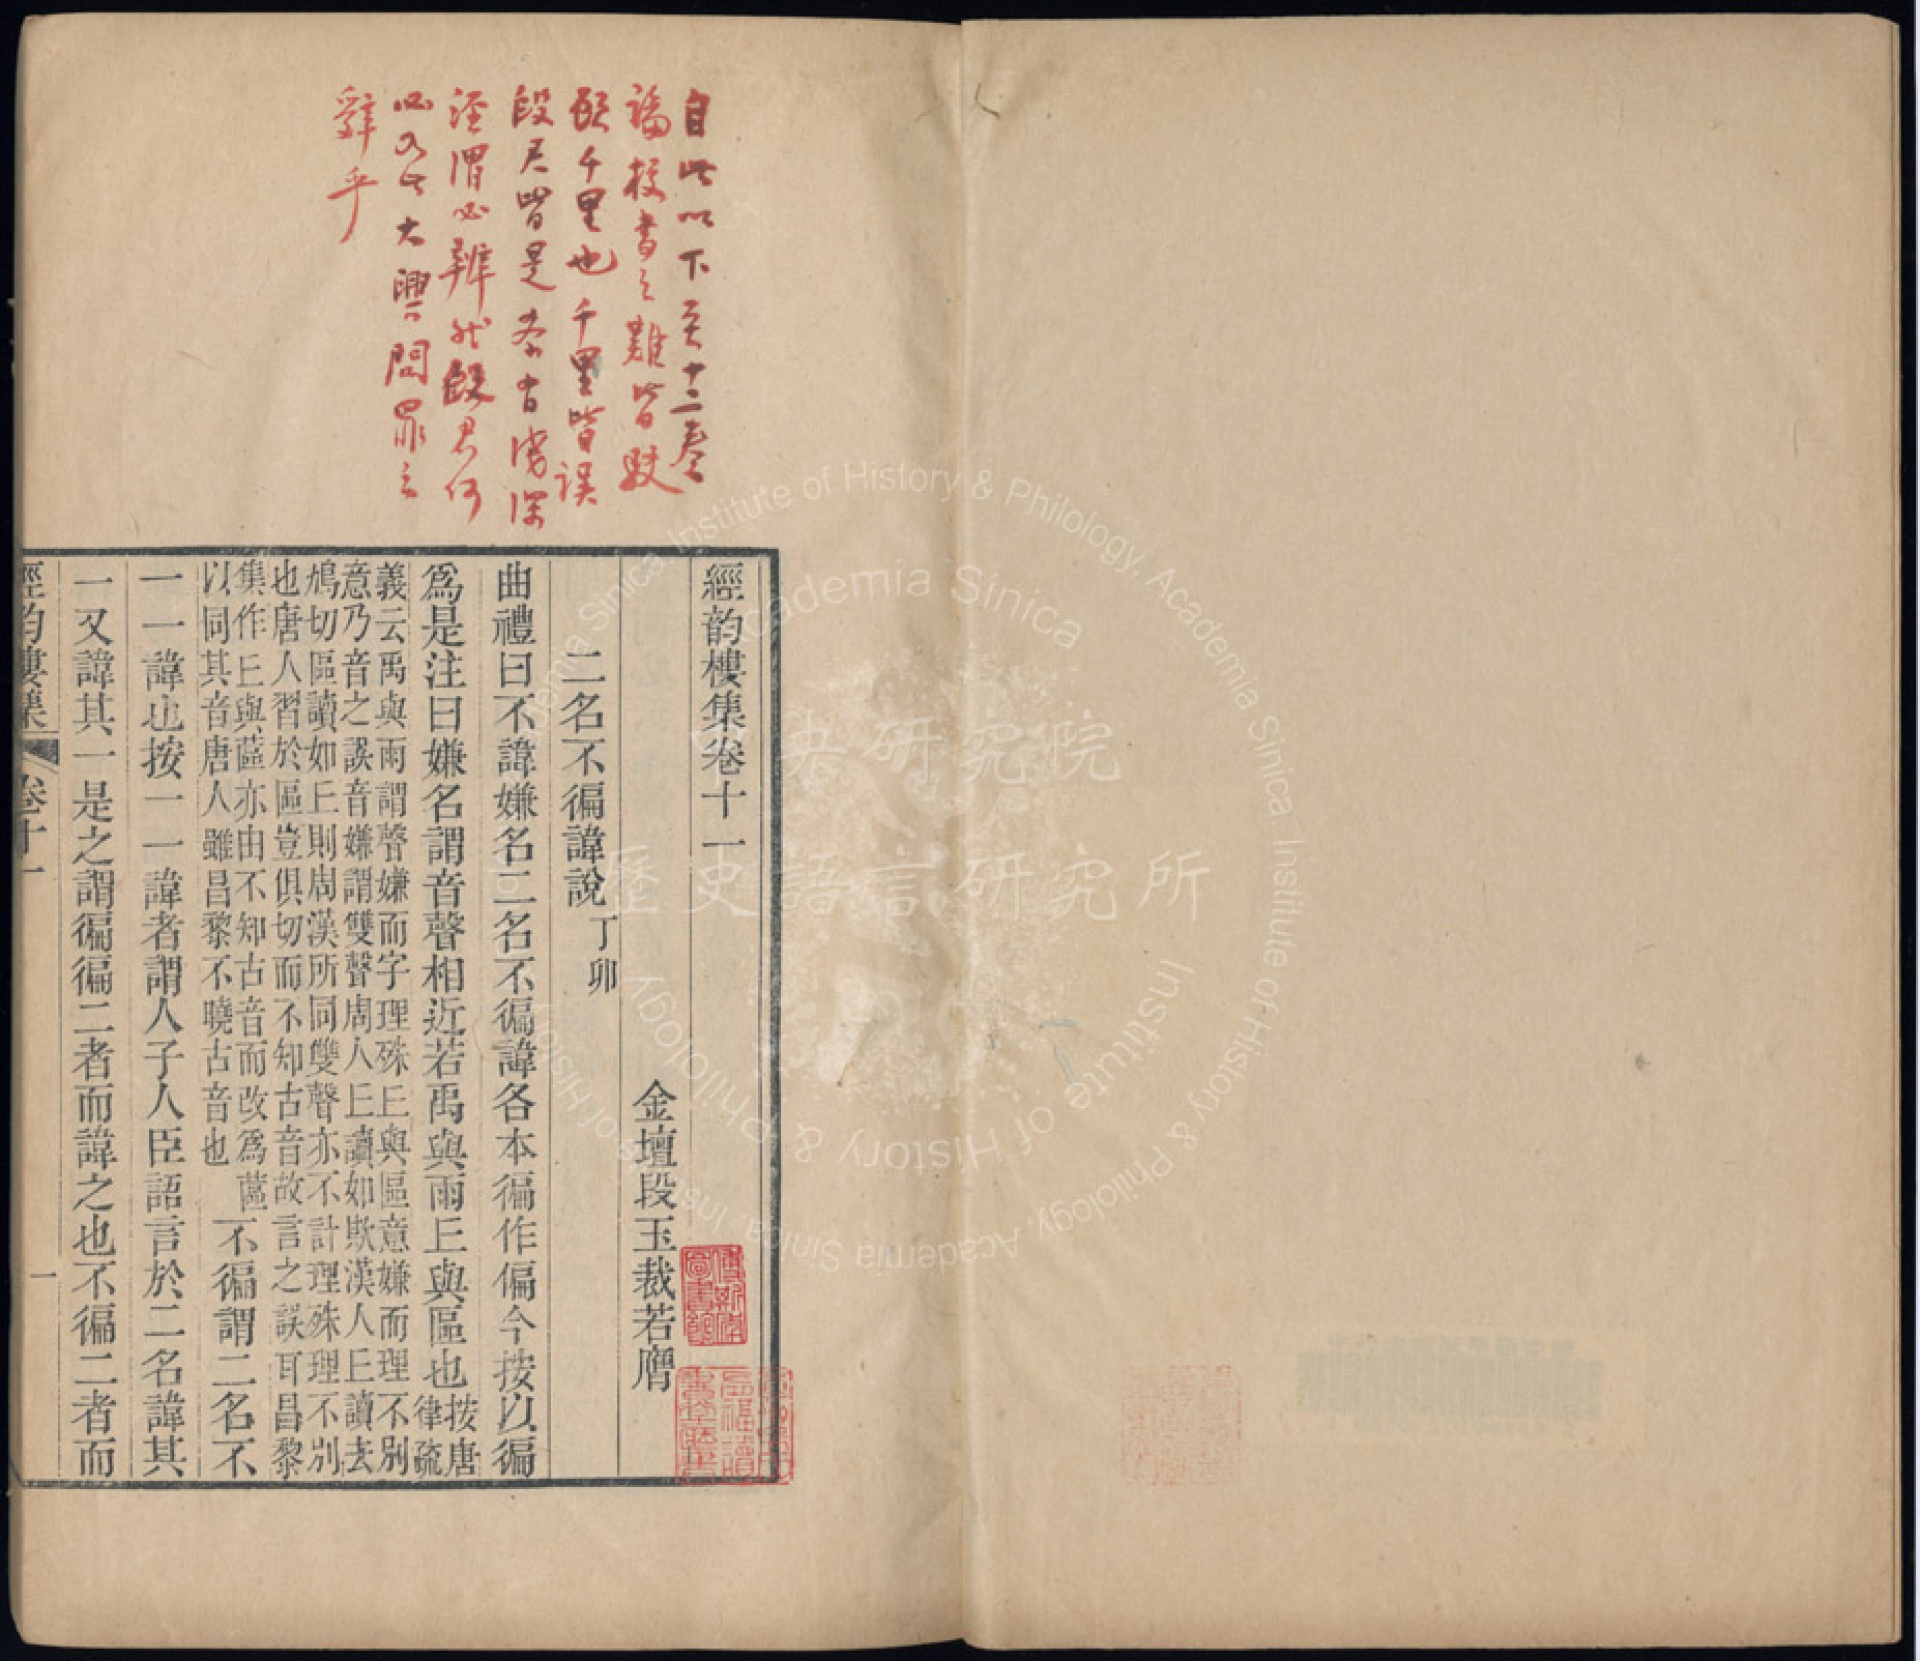 自此以下至十二卷
論校書之難皆駁
顧千里也千里皆誤
段君皆是本有淺深
涇渭必辨然段君何
必如此大興問罪之
辭乎
經韵樓集卷十一
金壇段玉裁若膺
二名不徧諱說 丁卯
曲禮曰不諱嫌名二名不徧諱各本徧作偏今按以徧
爲是注曰嫌名謂音聲相近若禹與雨丘與區也按唐
律疏
義云禹與雨謂聲嫌而字理殊丘與區意嫌而理不別
意乃音之誤音嫌謂雙聲周人丘讀如欺漢人丘讀去
鳩切區讀如丘則周漢所同雙聲亦不計理殊理不別
也唐人習於區豈俱切而不知古音故言之誤耳昌黎
集作丘與蓲亦由不知古音而改爲蓲
以同其音唐人雖昌黎不曉古音也
不徧謂二名不
一一諱也按一一諱者謂人子人臣語言於二名諱其
一又諱其一是之謂徧徧二者而諱之也不徧二者而
經韵樓集 卷十一 一
傅斯年圖書館
中央研究院
歷史語言研究所
Institute of History & Philology, Academia Sinica